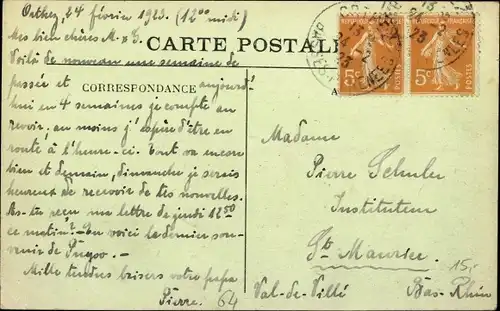 Orthez, 24 février 1923. (12°° midi)
Mes bien chères M. & G.
Voilà de nouveau une semaine de
passée et aujourd'
hui en 4 semaines je compte au
revoir, au moins j'espère d'être en
route à l'heure-ci. Tout va encore
bien et demain, dimanche je serais
heureux de recevoir de tes nouvelles.
As-tu reçu ma lettre de jeudi 12 50
ce matin? - En voici la dernier sou-
venir de Puyoo. -
Mille tendres baisers votre papa
Pierre. 64
CARTE POSTALE
CORRESPONDANCE
A
REPUBLIQUE FRANÇAISE
5c
POSTES
REPUBLIQUE FRANÇAISE
5c
POSTES
Madame
Pierre Schuler
Instituteur
St Maurice
15,-
Val-de-Villé Bas-Rhin